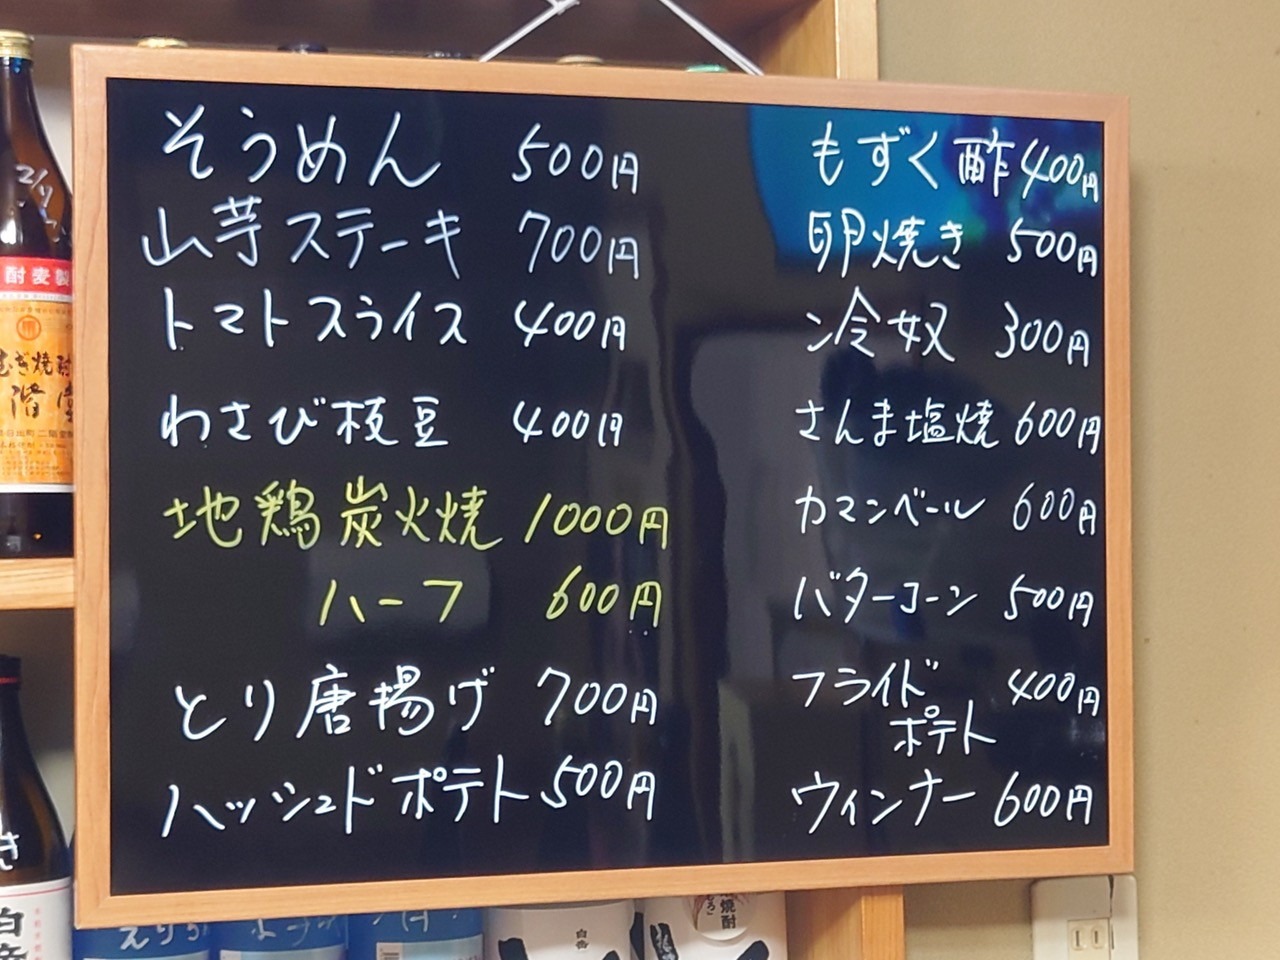 そうめん 500円
山芋ステーキ 700円
トマトスライス 400円
わさび枝豆 400円
地鶏炭火焼 1000円
ハーフ 600円
とり唐揚げ 700円
ハッシュドポテト 500円
もずく酢 400円
卵焼き 500円
冷奴 300円
さんま塩焼 600円
カマンベール 600円
バターコーン 500円
フライド 400円
ポテト
ウィンナー 600円
酎麦製
むぎ焼酎
階堂
白岳
白岳
焼酎